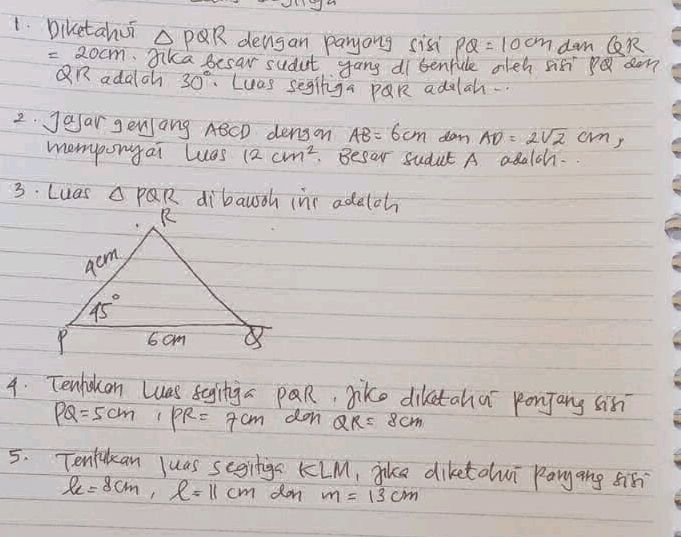 1. Diketahui △ PQR dengan panjang sisi PQ = 10 cm dan QR
= 20cm. Jika besar sudut yang di bentuk oleh sisi PQ dan
QR adalah 30°. Luas segitiga PQR adalah...
2. Jajar genjang ABCD dengan AB = 6cm dan AD = 2√2 cm,
mempunyai luas 12 cm². Besar sudut A adalah...
3. Luas △ PQR dibawah ini adalah
R
4cm
45°
P
6 cm
Q
4. Tentukan Luas segitiga PQR, jika diketahui panjang sisi
PQ = 5cm, PR = 7cm dan QR = 8cm
5. Tentukan luas segitiga KLM, jika diketahui panjang sisi
k = 8cm, l = 11 cm dan m = 13 cm